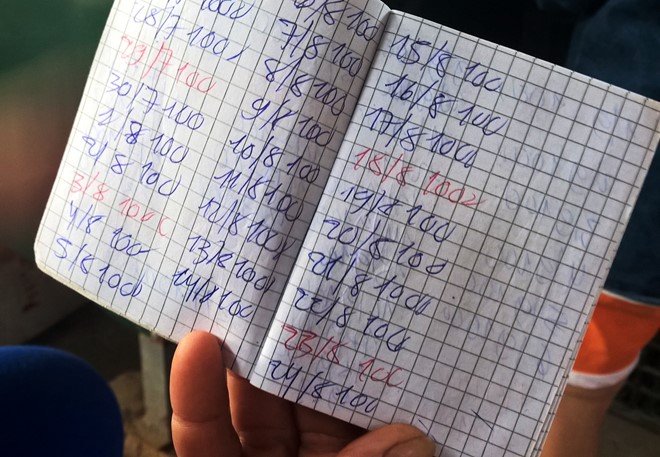 28/7 100
23/7 100
30/7 100
1/8 100
2/8 100
3/8 100
4/8 100
5/8 1000
6/8 100
7/8 100
8/8 100
9/8 100
10/8 100
11/8 100
12/8 100
13/8 100
14/8 100
15/8 100
16/8 100
17/8 100
18/8 100
19/8 100
20/8 100
21/8 100
22/8 100
23/8 100
24/8 100